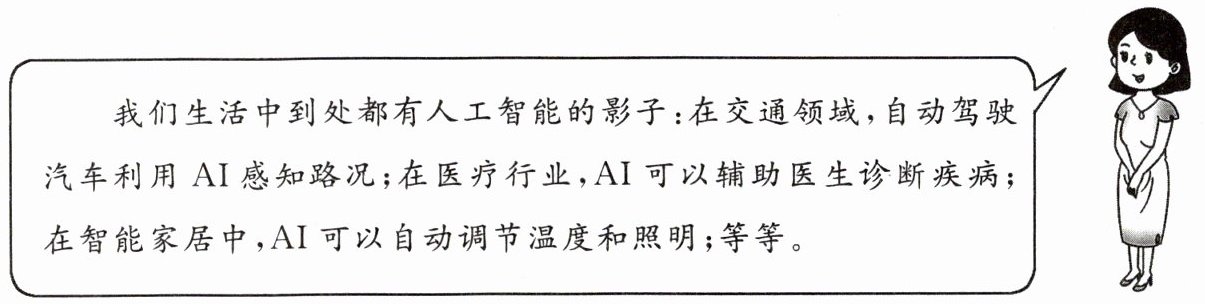 我们生活中到处都有人工智能的影子:在交通领域,自动驾驶
汽车利用 AI 感知路况;在医疗行业,AI 可以辅助医生诊断疾病;
在智能家居中,AI 可以自动调节温度和照明;等等。